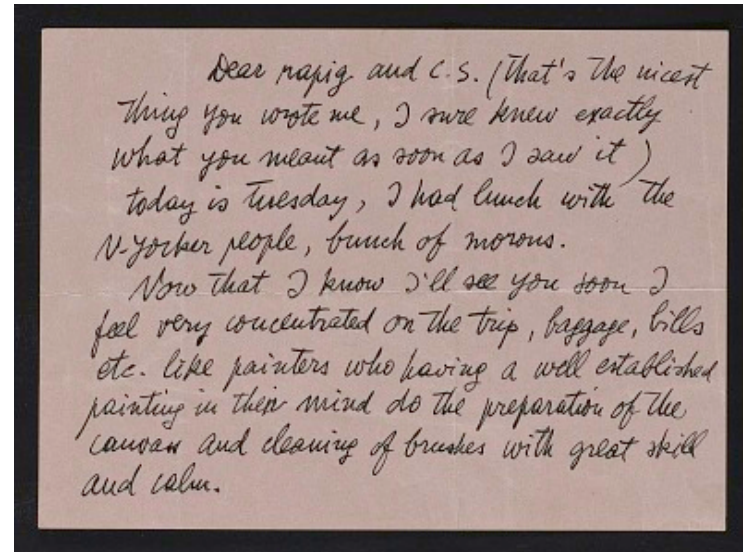 Dear rapig and C.S. (that's the nicest
thing you wrote me, I sure knew exactly
what you meant as soon as I saw it)
today is tuesday, I had lunch with the
N-Yorker people, bunch of morons.
Now that I know I'll see you soon I
feel very concentrated on the trip, baggage, bills
etc. like painters who having a well established
painting in their mind do the preparation of the
canvass and cleaning of brushes with great skill
and calm.